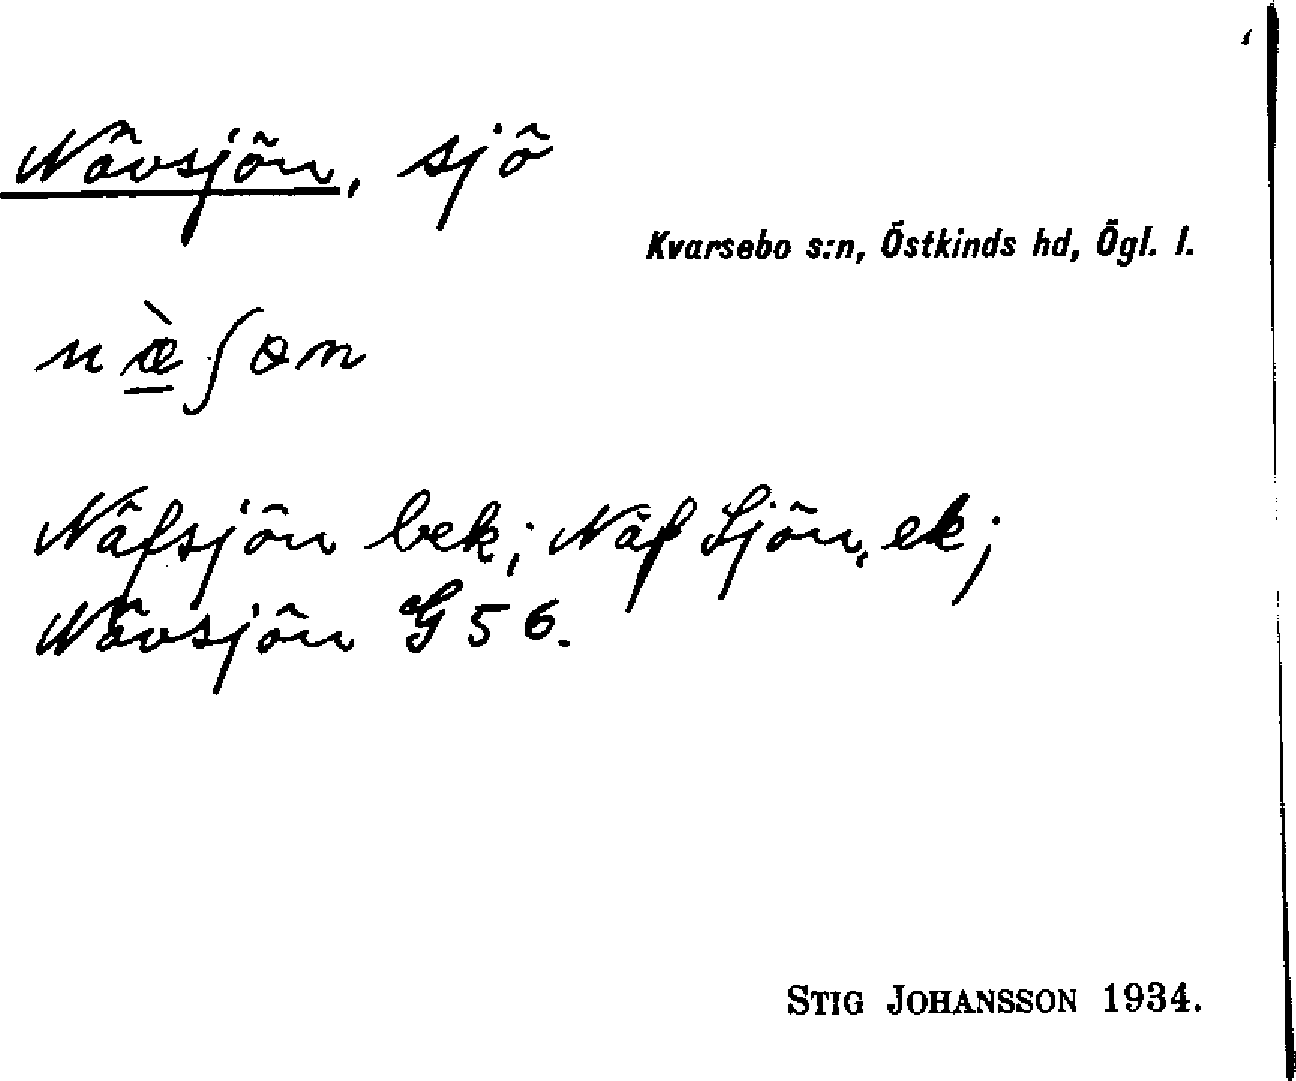 Nävsjön, sjö
Kvarsebo s:n, Östkinds hd, Ögl. l.
næ̀ʃɵn
Näfsjön bek; Näf Sjön, ek;
Nävsjön G 56.
STIG JOHANSSON 1934.